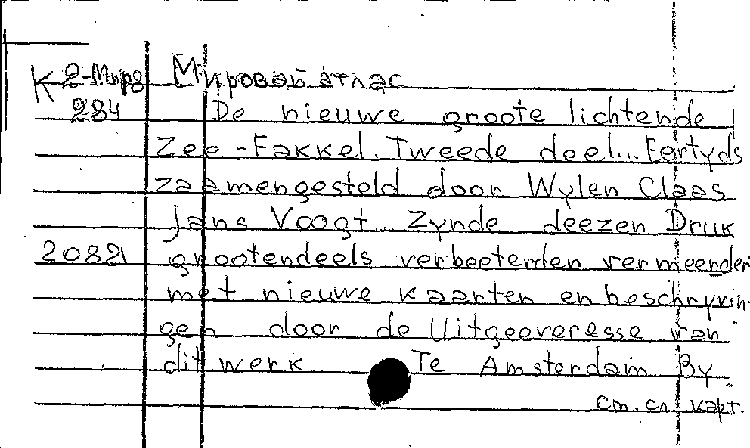 К 2-Мир8 Мировой атлас
284 De nieuwe groote lichtende
Zee-Fakkel. Tweede deel... Eertyds
zaamengesteld door Wylen Claas
Jans Voogt Zynde deezen Druk
2082 grootendeels verbeeterden vermeerder
met nieuwe kaarten en beschryvin-
gen door de Uitgeeveresse van
dit werk Te Amsterdam By
см. сл. карт.